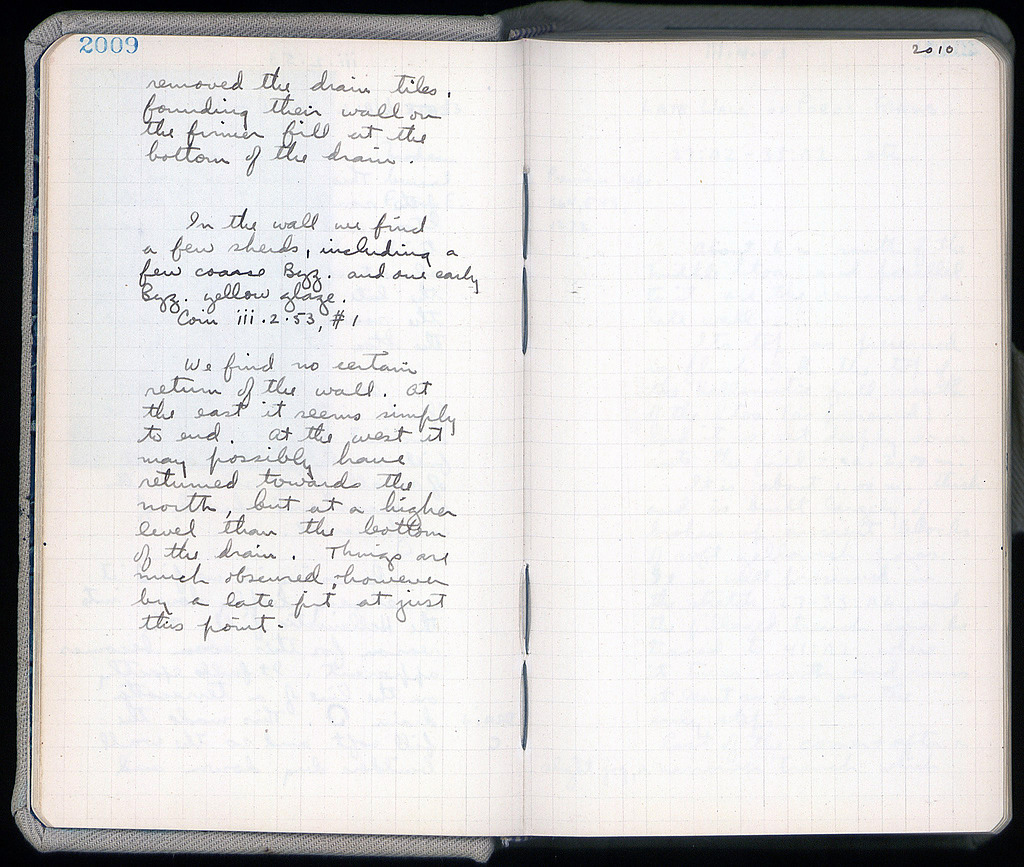 2009
removed the drain tiles,
founding their wall on
the firmer fill at the
bottom of the drain.
In the wall we find
a few sherds, including a
few coarse Byz. and one early
Byz. yellow glaze.
Coin iii.2.53, #1
We find no certain
return of the wall. At
the east it seems simply
to end. At the west it
may possibly have
returned towards the
north, but at a higher
level than the bottom
of the drain. Things are
much obscured, however
by a late pit at just
this point.
2010